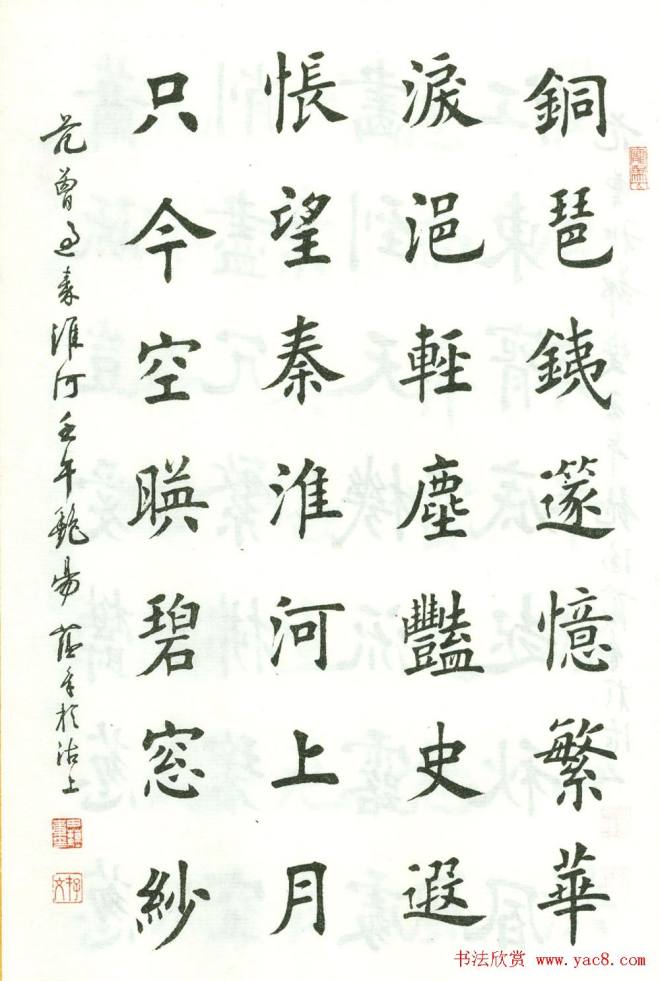 銅琶銕篴憶繁華
淚浥輕塵豔史遐
悵望秦淮河上月
只今空暎碧窓紗
范曾過秦淮河壬午於沽上
书法欣赏 www.yac8.com